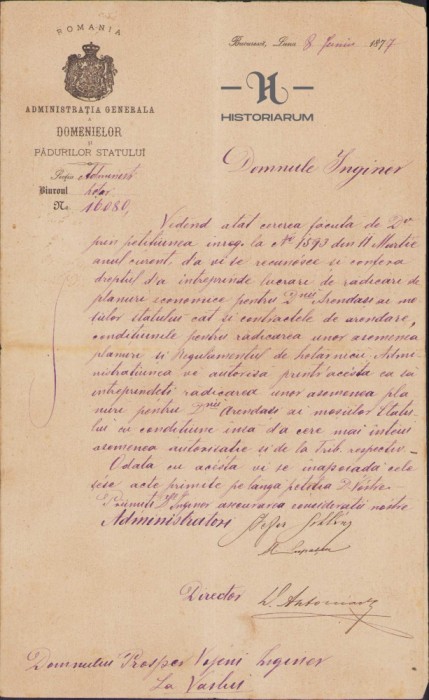 ROMANIA
ADMINISTRAȚIA GENERALA
A
DOMENIELOR
ȘI
PĂDURILOR STATULUI
Biuroul
No. 16080
Bucuresci, Luna 8 Iunie 1877
HISTORIARUM
Domnule Inginer
Vidend atat cererea facuta de Dv
prin petitiunea inreg. la No 1593 din 11 Martie
anul curent, d'a vi se recunosce si confera
dreptul d'a intreprinde lucrare de radicare de
planuri economice pentru Dnii Arendasi ai mo
siilor statului cât si contractele de arendare,
conditiunile pentru radicarea unor asemenea
planuri si Regulamentul de hotarnicii Admi-
nistratiunea vi autorisă printr'acesta ca să
intreprindeti radicarea unor asemenea pla
nuri pentru Dnii Arendasi ai mosiilor Statu
lui cu conditiune insă da cere mai inteiu
asemenea autorisatie si de la Trib. respectiv.
Odata cu acesta vi se inapoiadă cele
sese acte primite pe langa petitia D vóstre
Primiti Dle Inginer assurarea consideratii nóstre
Administratori
Director
Domnului Prosper Inginer
La Vaslui